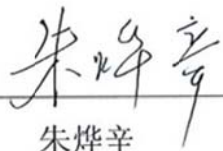 朱烨辛
朱烨辛